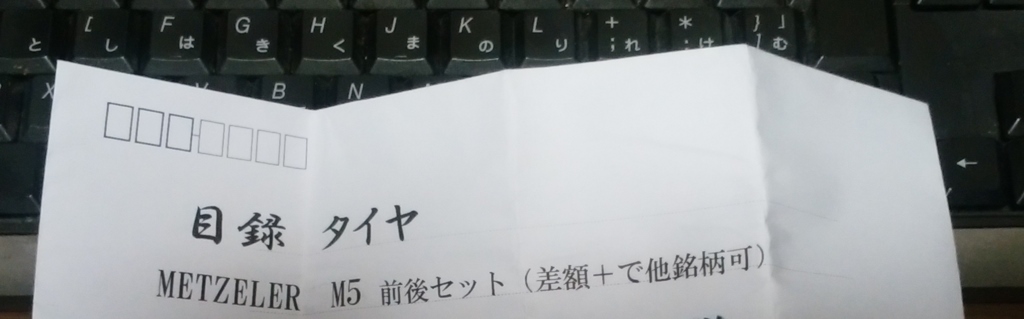 と [ し F は G き H く J ま K の L り + ; れ * : け } 」 む
X B N
←
目録 タイヤ
METZELER M5 前後セット（差額＋で他銘柄可）